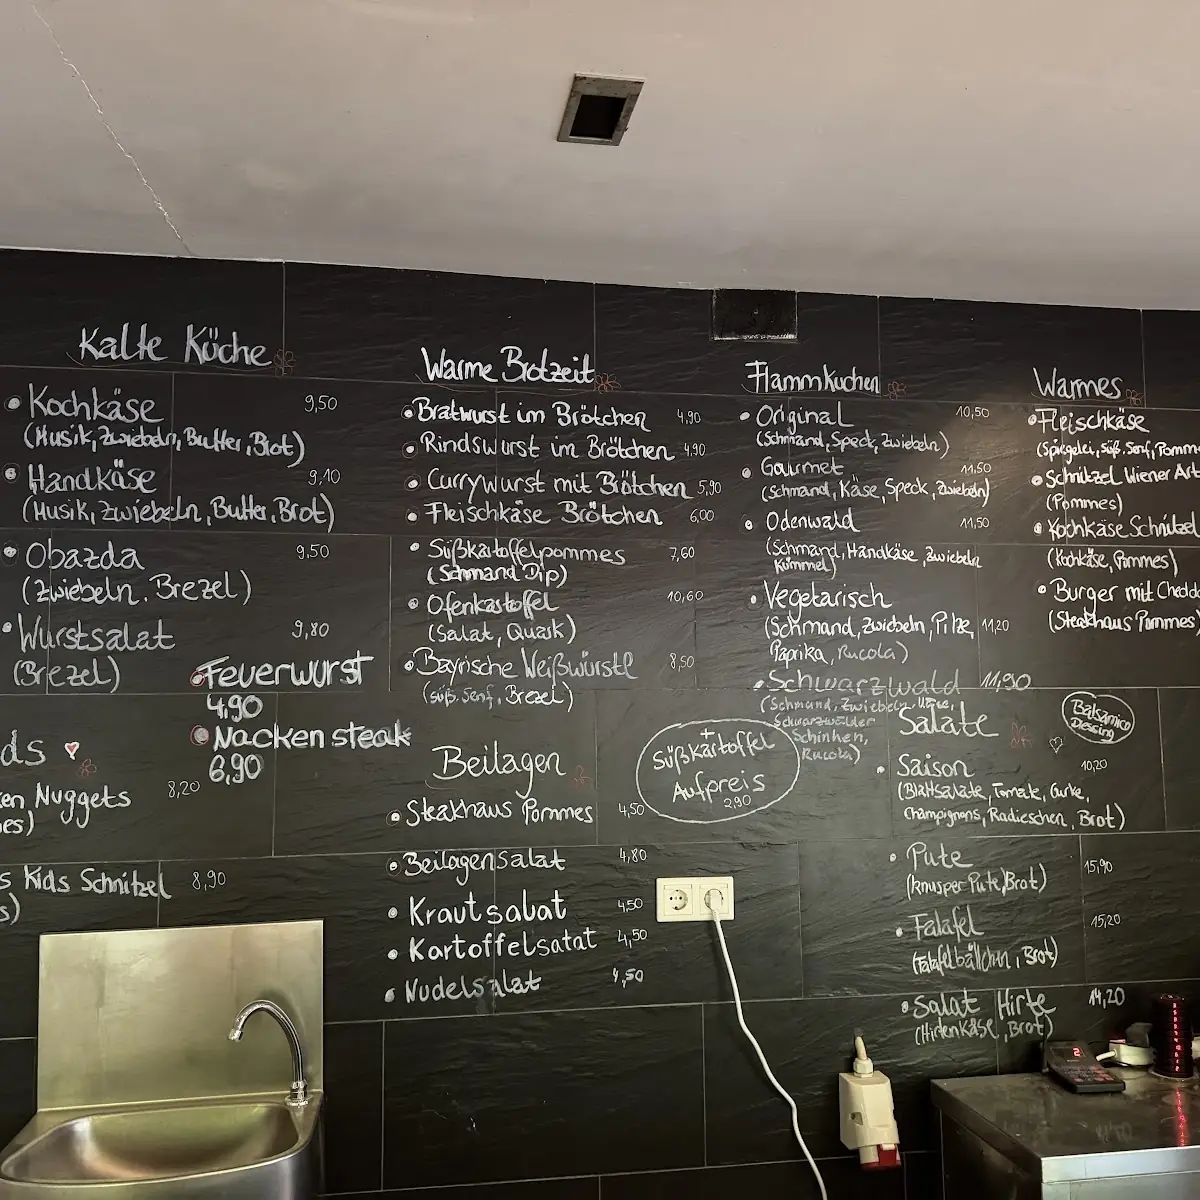 Kalte Küche
Kochkäse 9,50
(Musik, Zwiebeln, Butter, Brot)
Handkäse 9,10
(Musik, Zwiebeln, Butter, Brot)
Obazda 9,50
(Zwiebeln, Brezel)
Wurstsalat 9,80
(Brezel)
Feuerwurst
4,90
Nacken steak
6,90
ds
en Nuggets 8,20
es)
s Kids Schnitzel 8,90
s)
Warme Brotzeit
Bratwurst im Brötchen 4,90
Rindswurst im Brötchen 4,90
Currywurst mit Brötchen 5,90
Fleischkäse Brötchen 6,00
Süßkartoffelpommes 7,60
(Schmand Dip)
Ofenkartoffel 10,60
(Salat, Quark)
Bayrische Weißwürstl 8,50
(süß. Senf, Brezel)
Beilagen
Steakhaus Pommes 4,50
Beilagensalat 4,80
Krautsalat 4,50
Kartoffelsalat 4,50
Nudelsalat 4,50
+
Süßkartoffel
Aufpreis
2,90
Flammkuchen
Original 10,50
(Schmand, Speck, Zwiebeln)
Gourmet 11,50
(Schmand, Käse, Speck, Zwiebeln)
Odenwald 11,50
(Schmand, Handkäse, Zwiebeln
Kümmel)
Vegetarisch
(Schmand, Zwiebeln, Pilze, 11,20
Paprika, Rucola)
Schwarzwald 11,90
(Schmand, Zwiebeln,
Schwarzwälder
Schinken,
Rucola)
Warmes
Fleischkäse
(Spiegelei, süß. Senf, Pomme
Schnitzel Wiener Art
(Pommes)
Kochkäse Schnitzel
(Kochkäse, Pommes)
Burger mit Chedda
(Steakhaus Pommes)
Salate
Balsamico
Dressing
Saison 10,20
(Blattsalate, Tomate, Gurke,
Champignons, Radieschen, Brot)
Pute 15,90
(knusper Pute, Brot)
Falafel 15,20
(Falafelbällchen, Brot)
Salat Hirte 14,20
(Hirtenkäse, Brot)
2